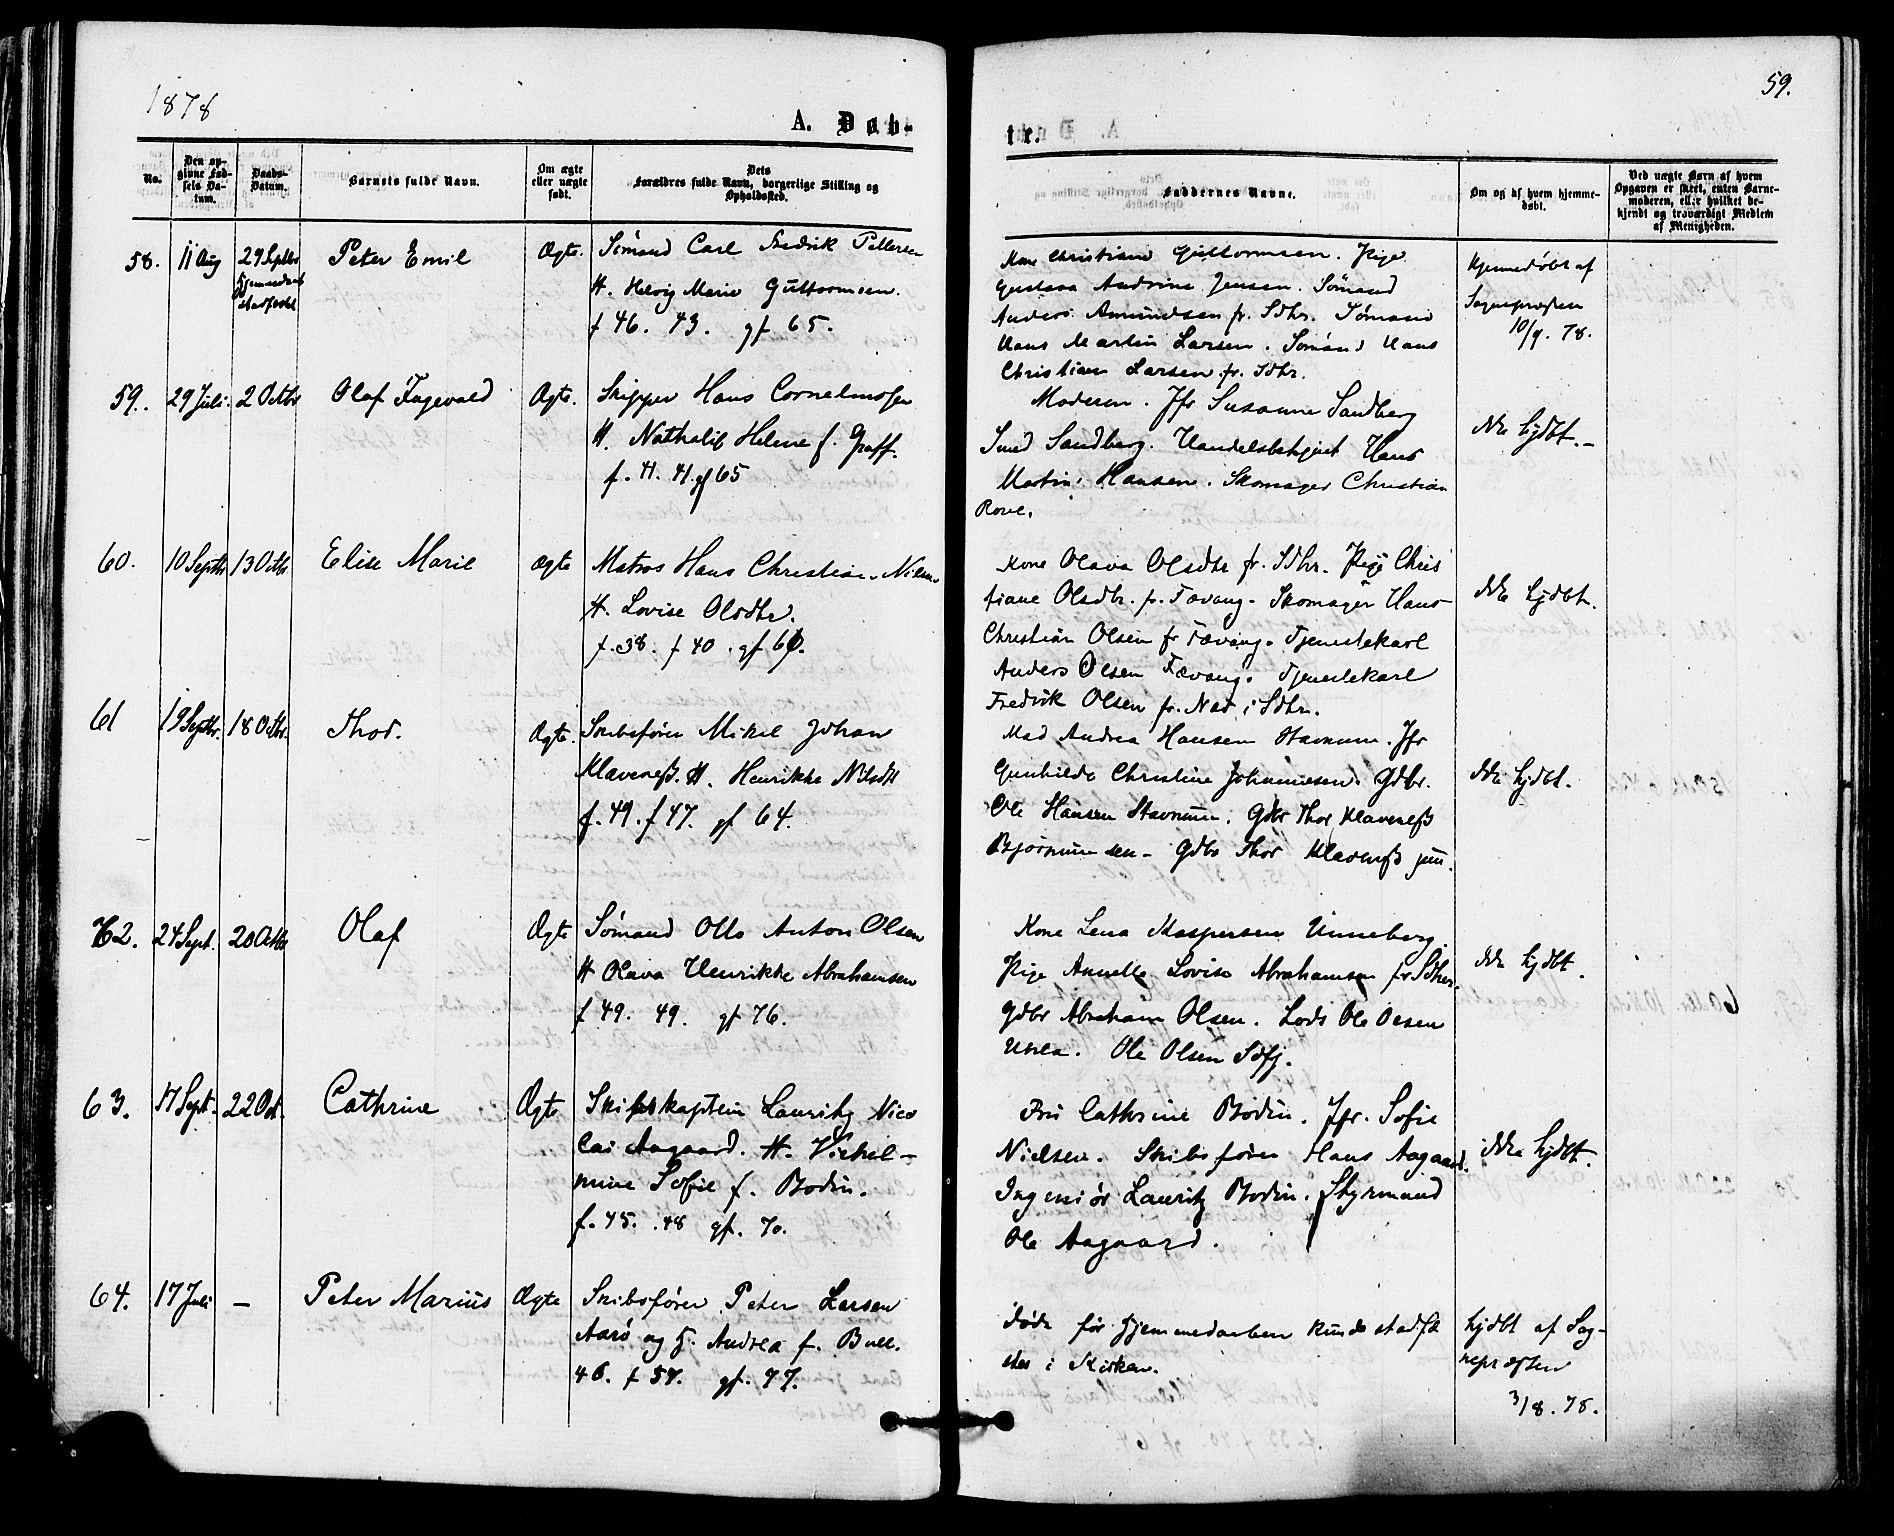 1878
A. Døb-
No.
Den op-
givne Fød-
sels Da-
tum.
Daabs-
Datum.
Barnets fulde Navn.
Om ægte
eller uægte
født.
Dets
Forældres fulde Navn, borgerlige Stilling og
Opholdssted.
58. 11 Aug 29 Septbr Peter Emil Ægte. Sømand Carl Fredrik Pettersen
Hjemmedaab
stadfestet
H. Helvig Marie Guttormsen.
f 46. 43. gf 65.
59. 29 Juli. 2 Octbr Olaf Fagevald Ægte. Skipper Hans Corneliussen
H. Nathalie Helene f. Graff.
f. 41. 41. gf 65
60. 10 Septbr 13 Octbr Elise Marie Ægte Matros Hans Christian Nilsen
H. Lovise Olsdtr.
f. 38. f 40. gf 60.
61 19 Septbr. 18 Octbr. Thor. Ægte. Skibsfører Mikel Johan
Klaveneß. H. Henrikke Nilsdt
f. 49. f 47. gf 64.
62. 24 Sept. 20 Octbr Olaf Ægte Sømand Otto Anton Olsen
H Olava Henrikke Abrahamsen
f 49. 49. gf 76.
63. 17 Sept. 22 Oct. Cathrine Ægte Skibskaptein Lauritz Nico
lai Aagaard. H. Vilhel-
mine Sofie f. Bodin.
f. 45. 48 gf. 70.
64. 17 Juli — Peter Marius Ægte Skibsfører Peter Larsen
Aarø og H. Andrea f. Bull.
46. f 57. gf. 77.
59.
tr.
Faddernes Navne.
Om og af hvem hjemme-
døbt.
Ved uægte Børn af hvem
Opgaven er skeet, enten Barne-
moderen, eller hvilket be-
kjendt og troværdigt Medlem
af Menigheden.
Kone Christiane Guttormsen. Pige
Gustava Andrine Jensen. Sømand
Anders Amundsen fr. Sdhr. Sømand
Hans Martin Larsen. Sømand Hans
Christian Larsen fr. Sdhr.
Hjemmedøbt af
Sognepræsten
10/9. 78.
Moderen. Jfr Susanne Sandberg
Smed Sandberg. Handelsbetjent Hans
Martin Hansen. Skomager Christian
Rove.
Ikke hjdbt.-
Kone Olava Olsdtr fr. Sdhr. Pige Chris
tiane Olsdtr. fr. Fævang. Skomager Hans
Christian Olsen fr Fævang. Tjenestekarl
Anders Olsen Fævang. Tjenestekarl
Fredrik Olsen fr. Nes i Sdhr.
Ikke hjdbt.
Mad Andrea Hansen Stavnum. Jfr
Gunhilda Christine Johannesen. Gdbr.
Ole Hansen Stavnum. Gdbr Thor Klaveneß
Bjørnum sen- Gdbr Thor Klaveneß jun.
Ikke hjdbt.
Kone Lena Kaspersen Unneberg
Pige Annette Lovise Abrahamsen fr Sdher.
Gdbr Abraham Olsen. Lods Ole Olsen
Ula. Ole Olsen Sdfj.
Ikke hjdbt.
Fru Cathrine Bodin. Jfr. Sofie
Nielsen. Skibsfører Hans Aagaard.
Ingeniør Lauritz Bodin. Styrmand
Ole Aagaard.
ikke hjdbt.
døde før Hjemmedaaben kunde stadfæ
stes i Kirken.
hjdbt af Sog-
nepræsten
3/8. 78.